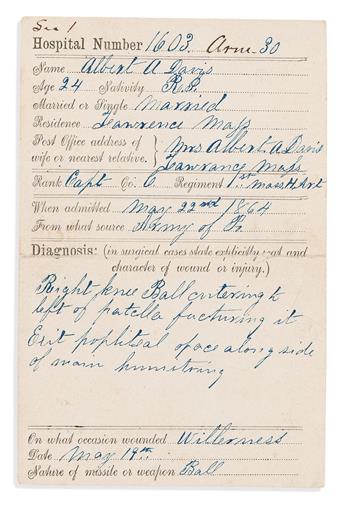 Sec 1
Hospital Number 1603. Arm-30
Name Albert A Davis
Age 24 Nativity
Married or Single Married
Residence Lawrence Mass
Post Office address of wife or nearest relative. } Mrs Albert A Davis
Lawrance Mass
Rank Capt Co. C. Regiment 1st Mass H Art
When admitted May 22nd 1864
From what source Army of Po.
Diagnosis: (in surgical cases state explicitly seat and
character of wound or injury.)
Right knee Ball entering
left of patella facturing it
Exit popliteal space along side
of main
On what occasion wounded Wilderness
Date May 19th
Nature of missile or weapon Ball